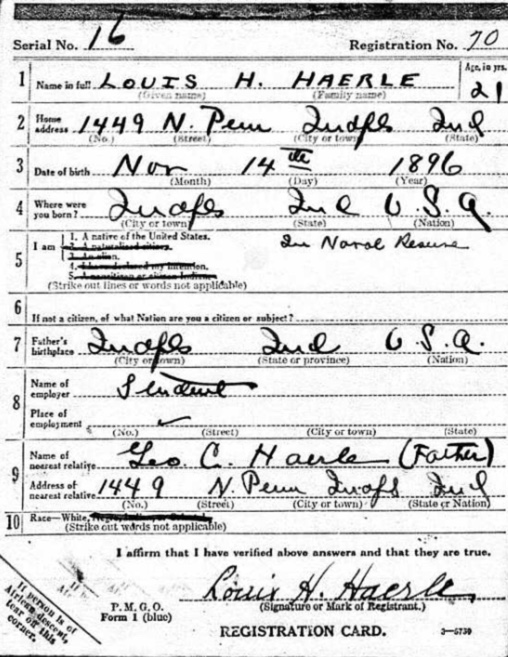 Serial No. 16 Registration No. 70
1 Name in full LOUIS H. HAERLE Age, in yrs. 21
(Given name) (Family name)
2 Home address 1449 N. Penn Indpls Ind
(No.) (Street) (City or town) (State)
3 Date of birth Nov 14th 1896
(Month) (Day) (Year)
4 Where were you born? Indpls Ind U.S.A.
(City or town) (State) (Nation)
5 I am 1. A native of the United States. In Naval Reserve
2. A naturalized citizen.
3. An alien.
4. I have declared my intention.
5. A noncitizen or citizen Indian.
(Strike out lines or words not applicable)
6 If not a citizen, of what Nation are you a citizen or subject?
7 Father's birthplace Indpls Ind U.S.A.
(City or town) (State or province) (Nation)
8 Name of employer Student
Place of employment ✓
(No.) (Street) (City or town) (State)
9 Name of nearest relative Geo. C. Haerle (Father)
Address of nearest relative 1449 N. Penn Indpls Ind
(No.) (Street) (City or town) (State or Nation)
10 Race—White,
(Strike out words not applicable)
I affirm that I have verified above answers and that they are true.
Louis H. Haerle
(Signature or Mark of Registrant.)
P. M. G. O.
Form 1 (blue)
REGISTRATION CARD. 3—5730
If person is of
African descent,
tear off this
corner.